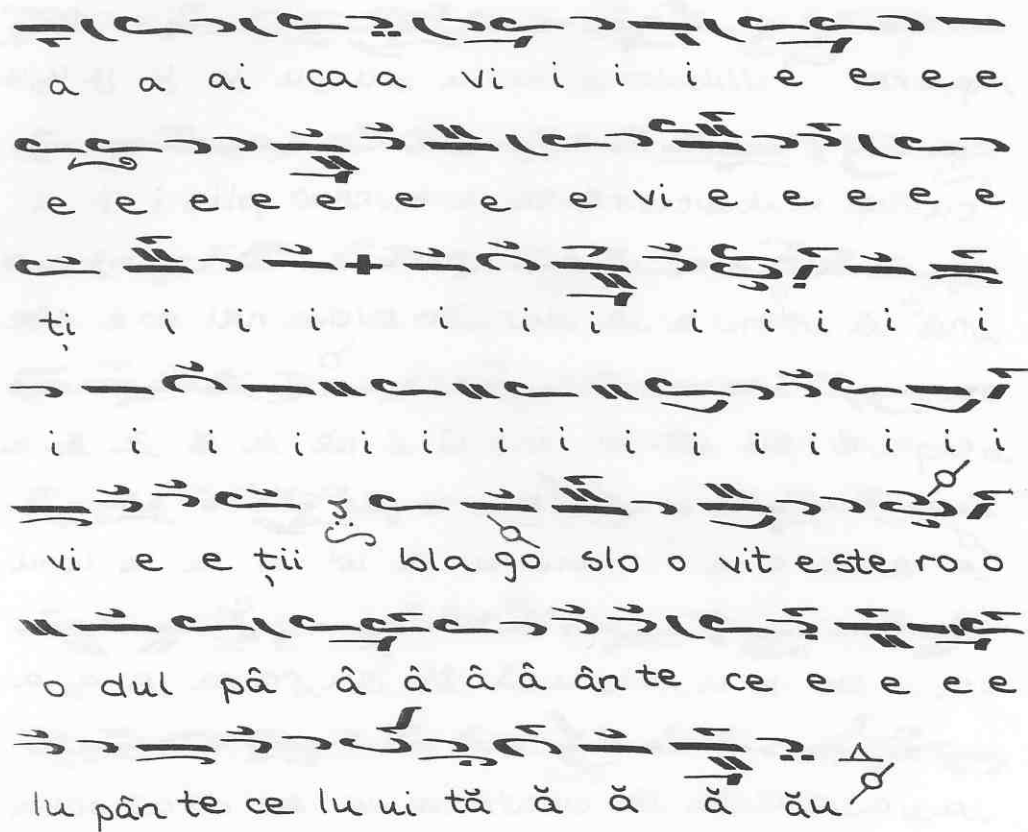 â â âi ca a vi i i i e e e e
e e e e e e e e e e vi e e e e e
ți i i i i i i i i i i
i i i i i i i i i i i i i i
vi e e ții bla go slo o vit este ro o
o dul pâ â â â ân te ce e e e e
lu pân te ce lu ui tă ă ă ă ău